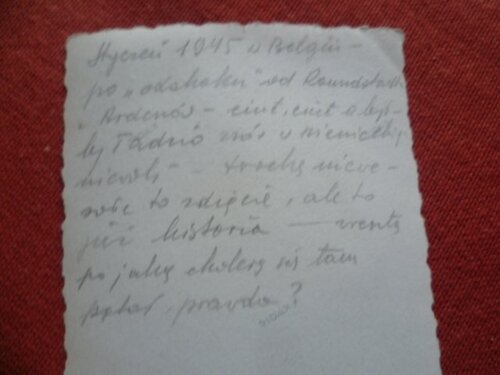 Styczeń 1945 w Belgii -
po „odskoku" od Roundstadta
z Ardenów - ciut, ciut a był-
by Tadzio znów w niemieckiej
niewoli - trochę niewy-
to zdjęcie, ale to
już historia - zresztą
po jaką cholerę się tam
pętał, prawda?